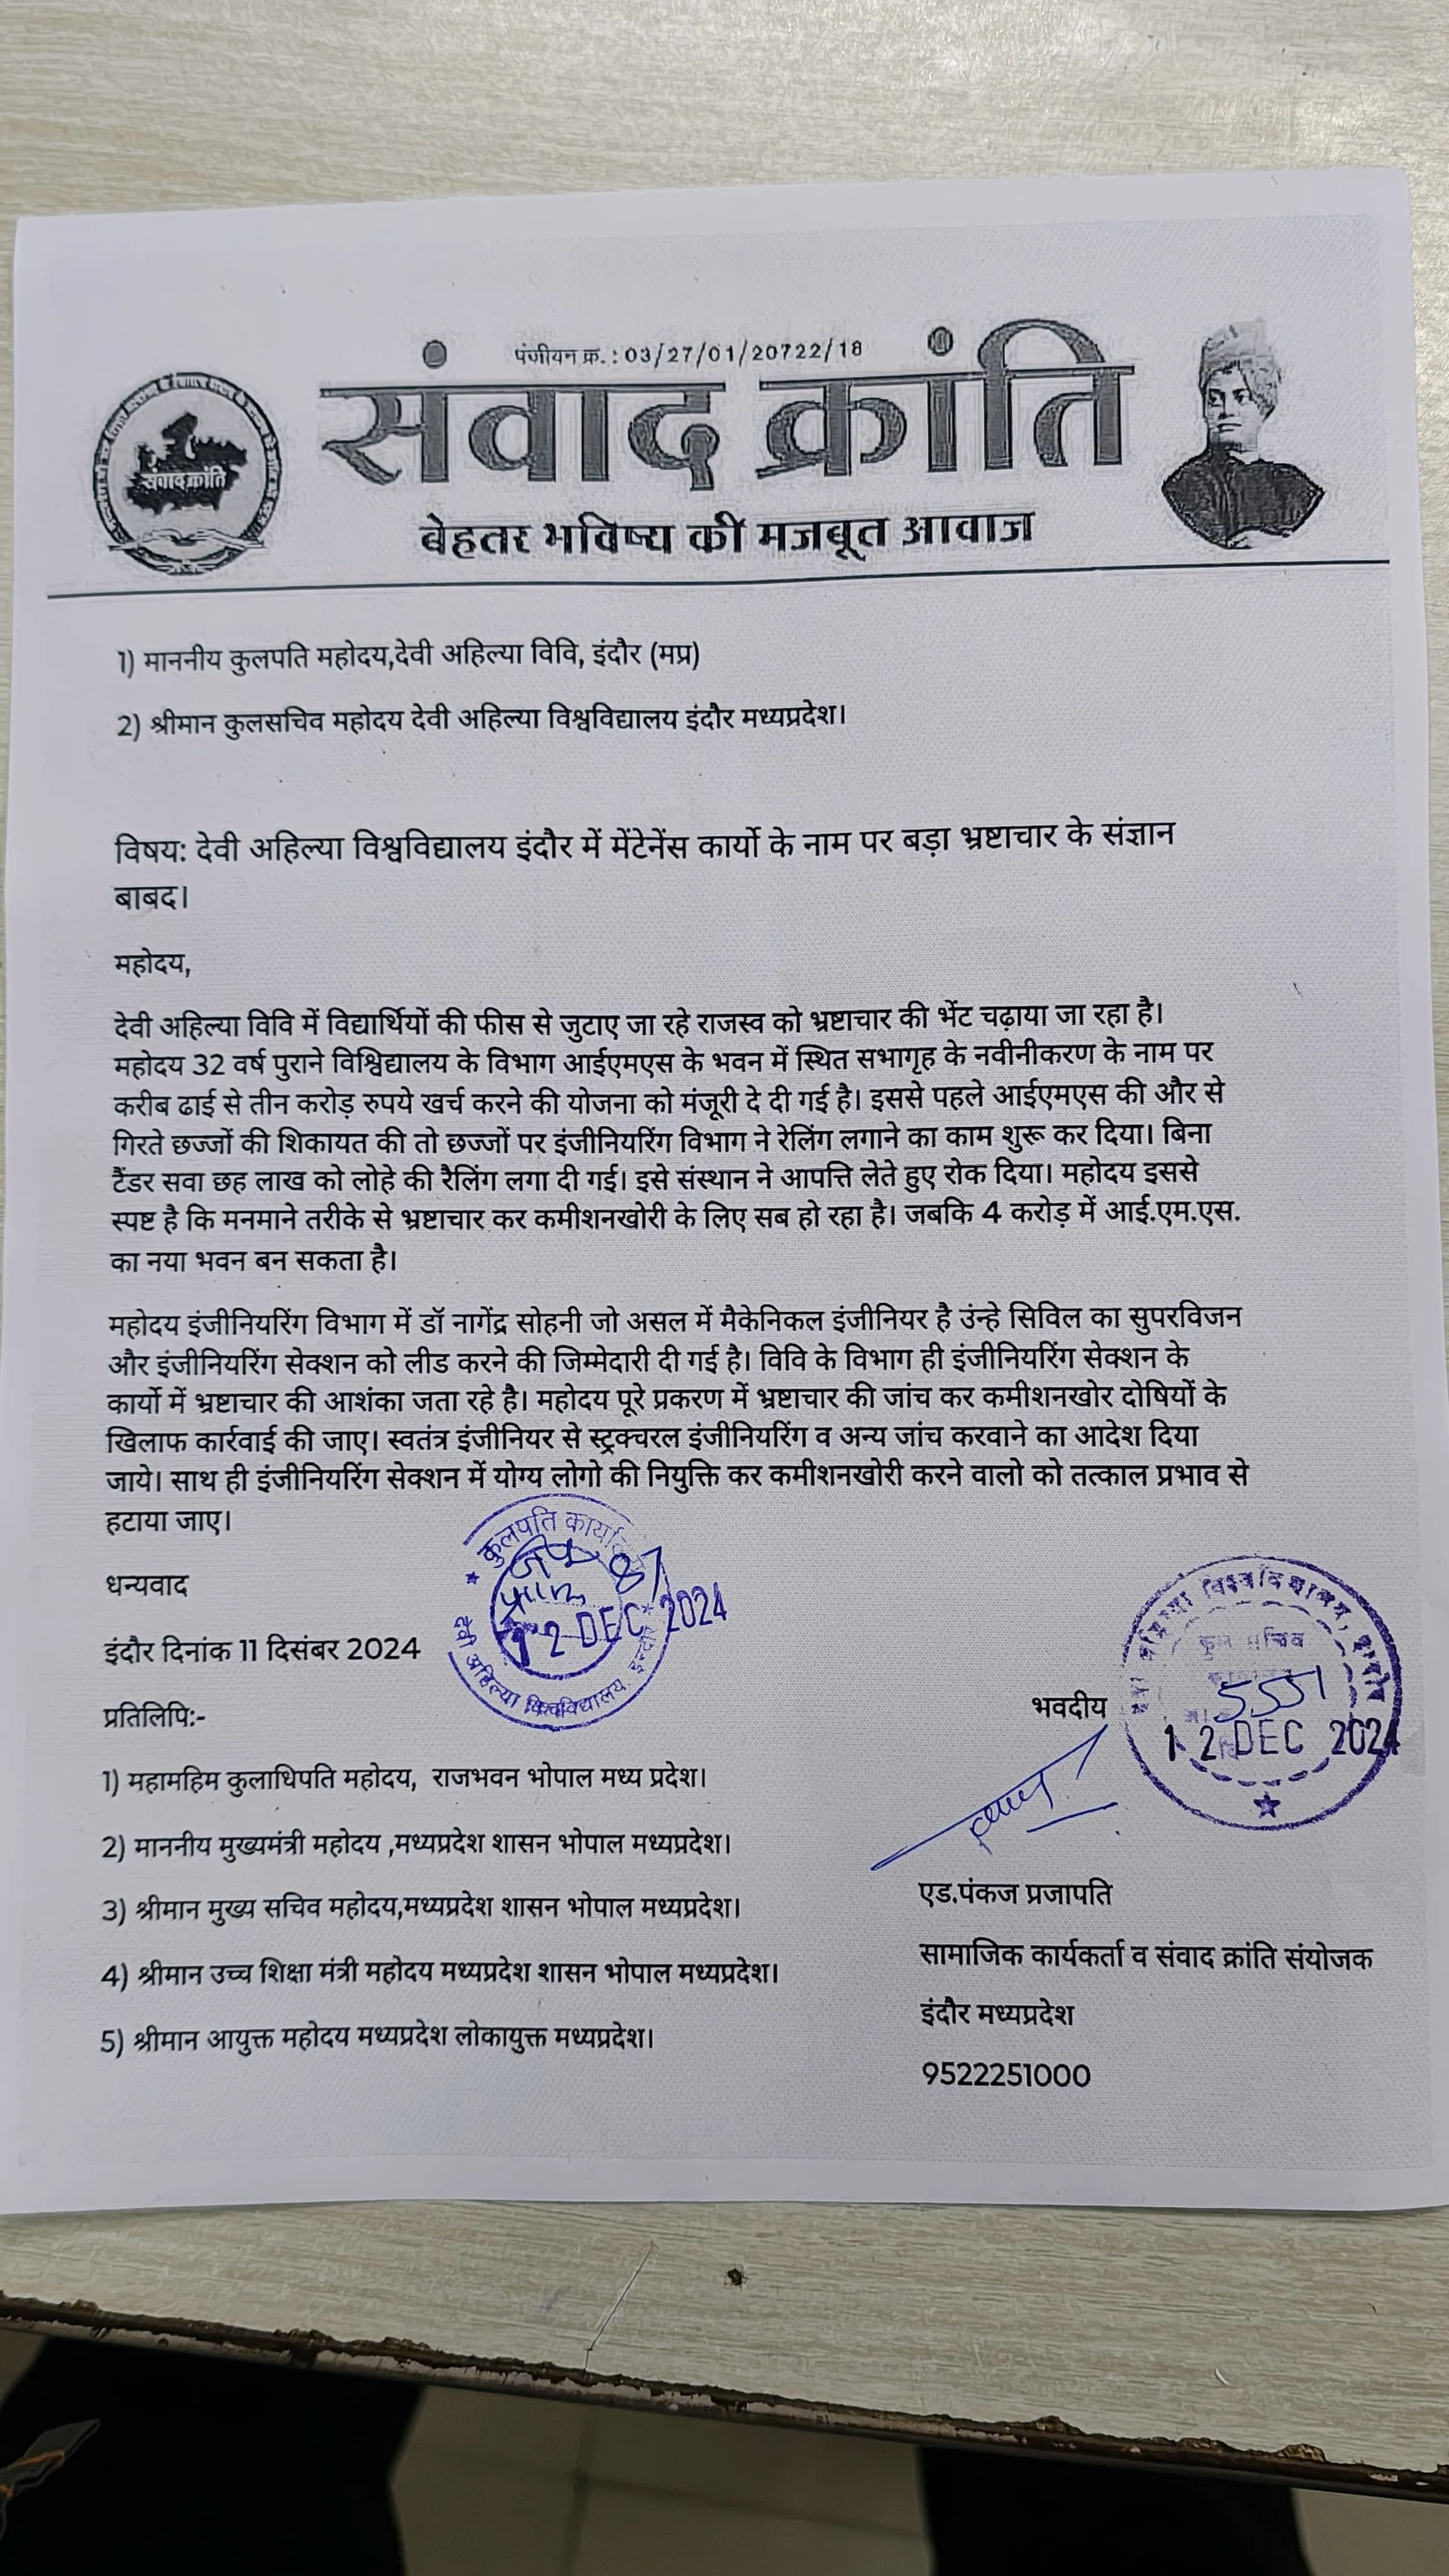 पंजीयन क्र. : 03/27/01/20722/18
संवाद क्रांति
संवाद क्रांति
बेहतर भविष्य की मजबूत आवाज
1) माननीय कुलपति महोदय,देवी अहिल्या विवि, इंदौर (मप्र)
2) श्रीमान कुलसचिव महोदय देवी अहिल्या विश्वविद्यालय इंदौर मध्यप्रदेश।
विषय: देवी अहिल्या विश्वविद्यालय इंदौर में मेंटेनेंस कार्यो के नाम पर बड़ा भ्रष्टाचार के संज्ञान
बाबद।
महोदय,
देवी अहिल्या विवि में विद्यार्थियों की फीस से जुटाए जा रहे राजस्व को भ्रष्टाचार की भेंट चढ़ाया जा रहा है।
महोदय 32 वर्ष पुराने विश्विद्यालय के विभाग आईएमएस के भवन में स्थित सभागृह के नवीनीकरण के नाम पर
करीब ढाई से तीन करोड़ रुपये खर्च करने की योजना को मंजूरी दे दी गई है। इससे पहले आईएमएस की और से
गिरते छज्जों की शिकायत की तो छज्जों पर इंजीनियरिंग विभाग ने रेलिंग लगाने का काम शुरू कर दिया। बिना
टैंडर सवा छह लाख को लोहे की रैलिंग लगा दी गई। इसे संस्थान ने आपत्ति लेते हुए रोक दिया। महोदय इससे
स्पष्ट है कि मनमाने तरीके से भ्रष्टाचार कर कमीशनखोरी के लिए सब हो रहा है। जबकि 4 करोड़ में आई.एम.एस.
का नया भवन बन सकता है।
महोदय इंजीनियरिंग विभाग में डॉ नागेंद्र सोहनी जो असल में मैकेनिकल इंजीनियर है उंन्हे सिविल का सुपरविजन
और इंजीनियरिंग सेक्शन को लीड करने की जिम्मेदारी दी गई है। विवि के विभाग ही इंजीनियरिंग सेक्शन के
कार्यो में भ्रष्टाचार की आशंका जता रहे है। महोदय पूरे प्रकरण में भ्रष्टाचार की जांच कर कमीशनखोर दोषियों के
खिलाफ कार्रवाई की जाए। स्वतंत्र इंजीनियर से स्ट्रक्चरल इंजीनियरिंग व अन्य जांच करवाने का आदेश दिया
जाये। साथ ही इंजीनियरिंग सेक्शन में योग्य लोगो की नियुक्ति कर कमीशनखोरी करने वालो को तत्काल प्रभाव से
हटाया जाए।
धन्यवाद
कुलपति
87
12 DEC 2024
देवी अहिल्या विश्वविद्यालय
इंदौर दिनांक 11 दिसंबर 2024
भवदीय
विश्वविद्यालय,
5551
12 DEC 2024
प्रतिलिपि:-
1) महामहिम कुलाधिपति महोदय, राजभवन भोपाल मध्य प्रदेश।
2) माननीय मुख्यमंत्री महोदय ,मध्यप्रदेश शासन भोपाल मध्यप्रदेश।
3) श्रीमान मुख्य सचिव महोदय,मध्यप्रदेश शासन भोपाल मध्यप्रदेश।
4) श्रीमान उच्च शिक्षा मंत्री महोदय मध्यप्रदेश शासन भोपाल मध्यप्रदेश।
5) श्रीमान आयुक्त महोदय मध्यप्रदेश लोकायुक्त मध्यप्रदेश।
एड.पंकज प्रजापति
सामाजिक कार्यकर्ता व संवाद क्रांति संयोजक
इंदौर मध्यप्रदेश
9522251000